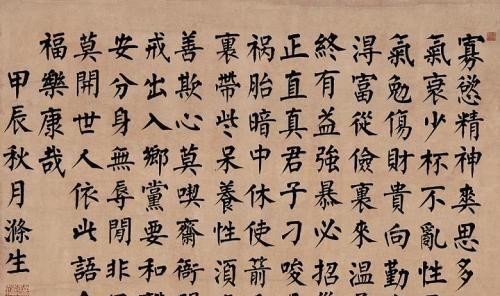 寡慾精神爽思多
氣衰少杯不亂性
氣勉傷財貴向勤
淂富從儉裏來温
終有益強暴必招
正直真君子刁唆
祸胎暗中休使箭
裏帶些呆養性湏
善欺心莫喫齋衙
戒出入鄉黨要和
安分身無辱閒非
莫開世人依此語
福樂康哉
甲辰秋月滌生